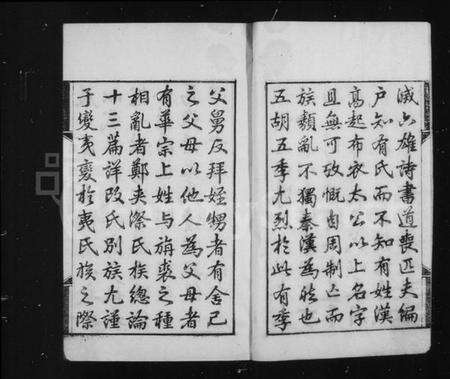 滅六雄詩書道喪匹夫編
戶知有氏而不知有姓漢
高起布衣太公以上名字
且無可攷慨自周制亡而
族類亂不獨秦漢為然也
五胡五季尤烈於此有季
父舅反拜姪甥者有舍己
之父母以他人為父母者
有華宗上姓與旃裘之種
相亂者鄭夾漈氏族總論
十三篇詳攷氏別族尤謹
于變夷變於夷氏族之際